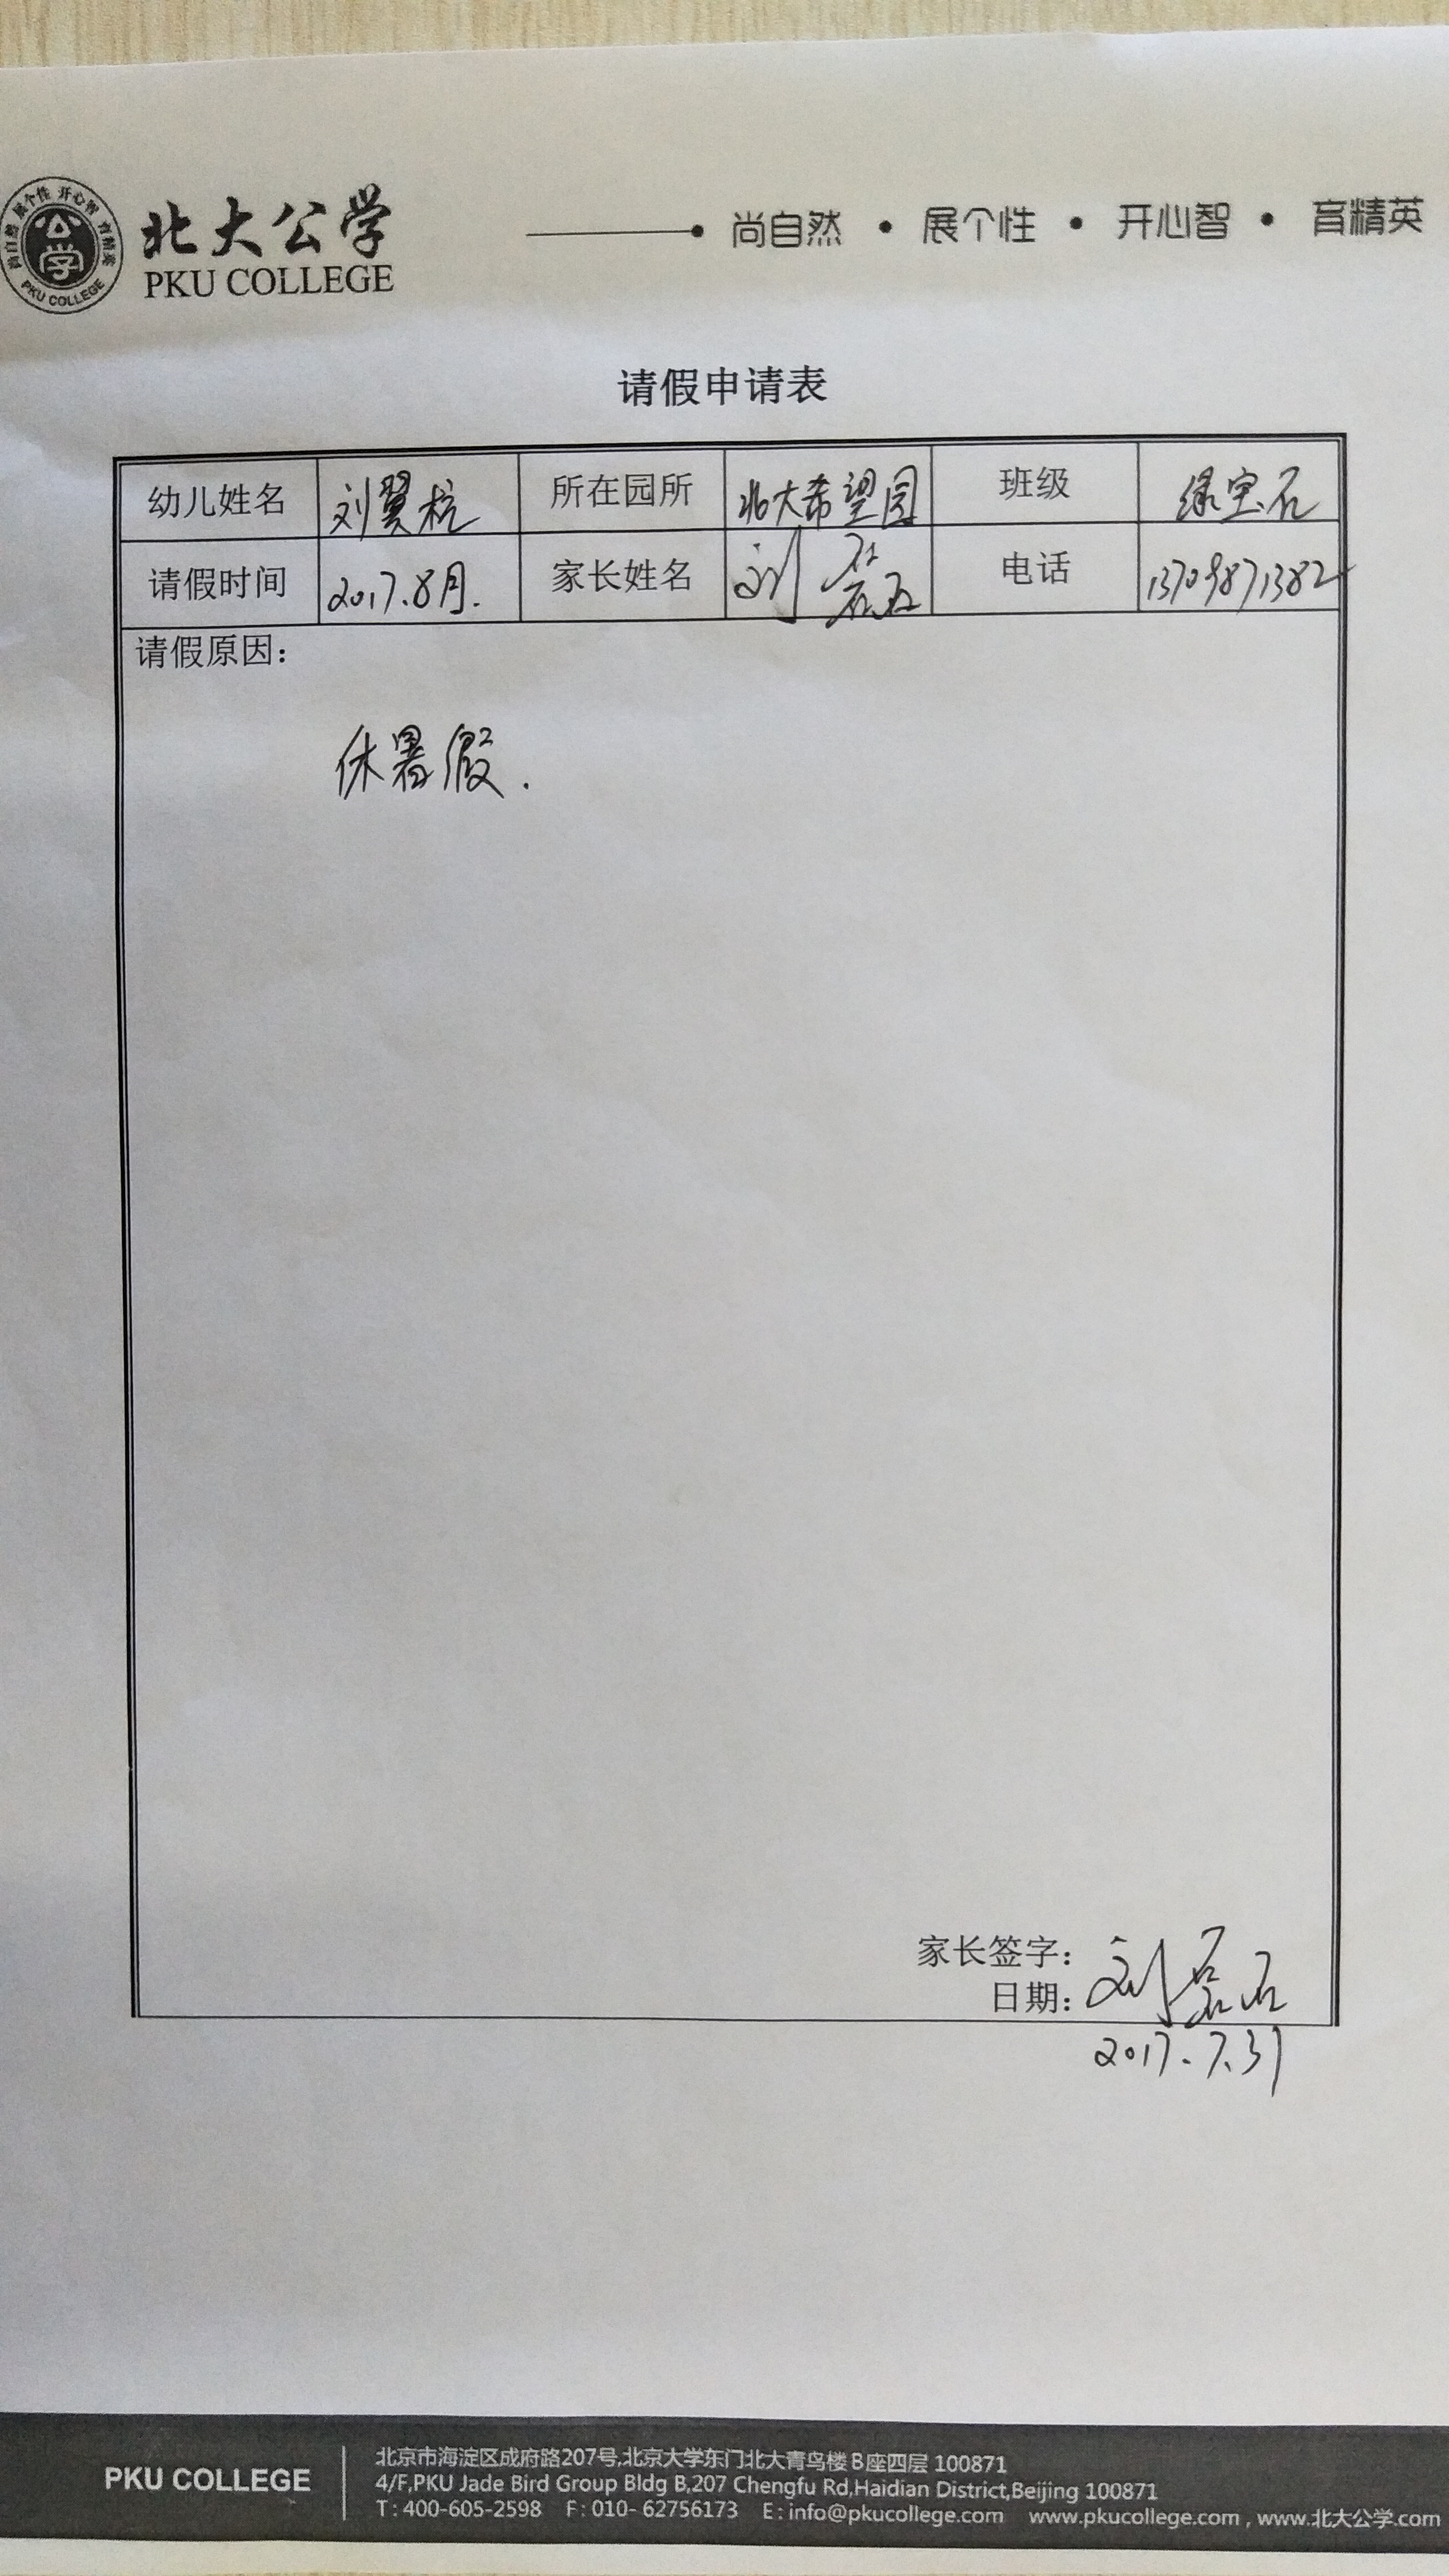 尚自然 展个性 开心智 育精英
公学
PKU COLLEGE
北大公学
PKU COLLEGE
尚自然 • 展个性 • 开心智 • 育精英
请假申请表
幼儿姓名 刘翼杭 所在园所 北大希望园 班级 绿宝石
请假时间 2017.8月. 家长姓名 刘磊 电话 13709871382
请假原因：
休暑假.
家长签字： 刘磊
日期：
2017.7.31
PKU COLLEGE
北京市海淀区成府路207号,北京大学东门北大青鸟楼B座四层 100871
4/F,PKU Jade Bird Group Bldg B,207 Chengfu Rd,Haidian District,Beijing 100871
T:400-605-2598 F:010-62756173 E:info@pkucollege.com www.pkucollege.com , www.北大公学.com